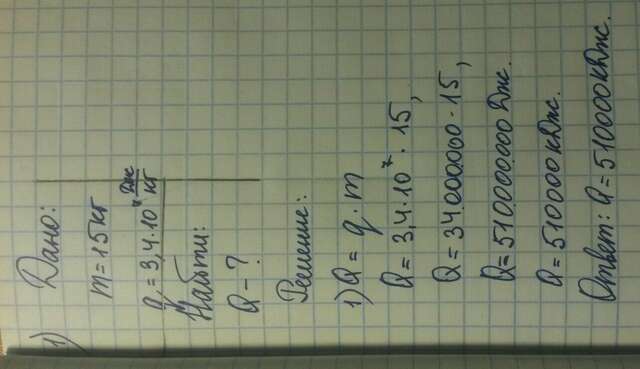 1) Дано:
m = 15 кг
q = 3,4 · 10⁷ Дж/кг
Найти:
Q – ?
Решение:
1) Q = q · m
Q = 3,4 · 10⁷ · 15,
Q = 34 000 000 · 15,
Q = 510 000 000 Дж.
Q = 510 000 кДж.
Ответ: Q = 510 000 кДж.